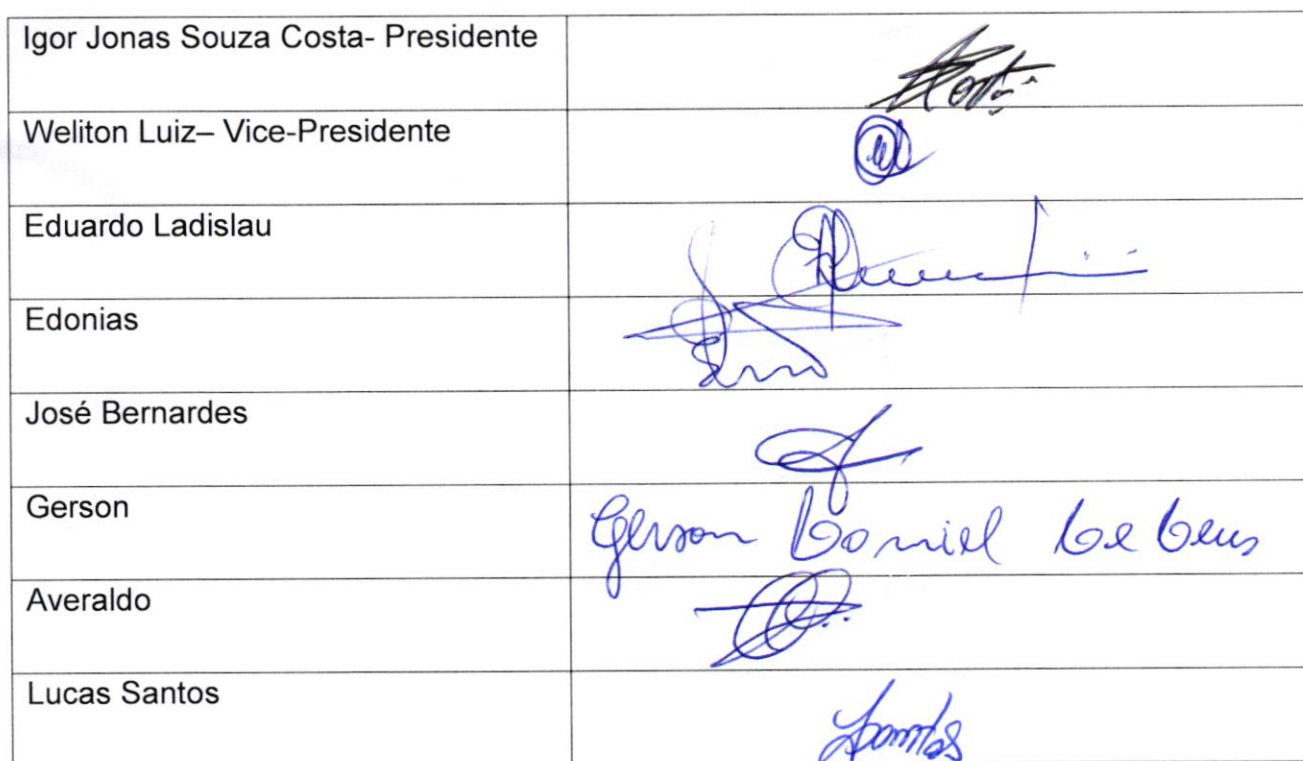 Igor Jonas Souza Costa- Presidente
Weliton Luiz– Vice-Presidente
Eduardo Ladislau
Edonias
José Bernardes
Gerson
Gerson Daniel de Deus
Averaldo
Lucas Santos
Santos